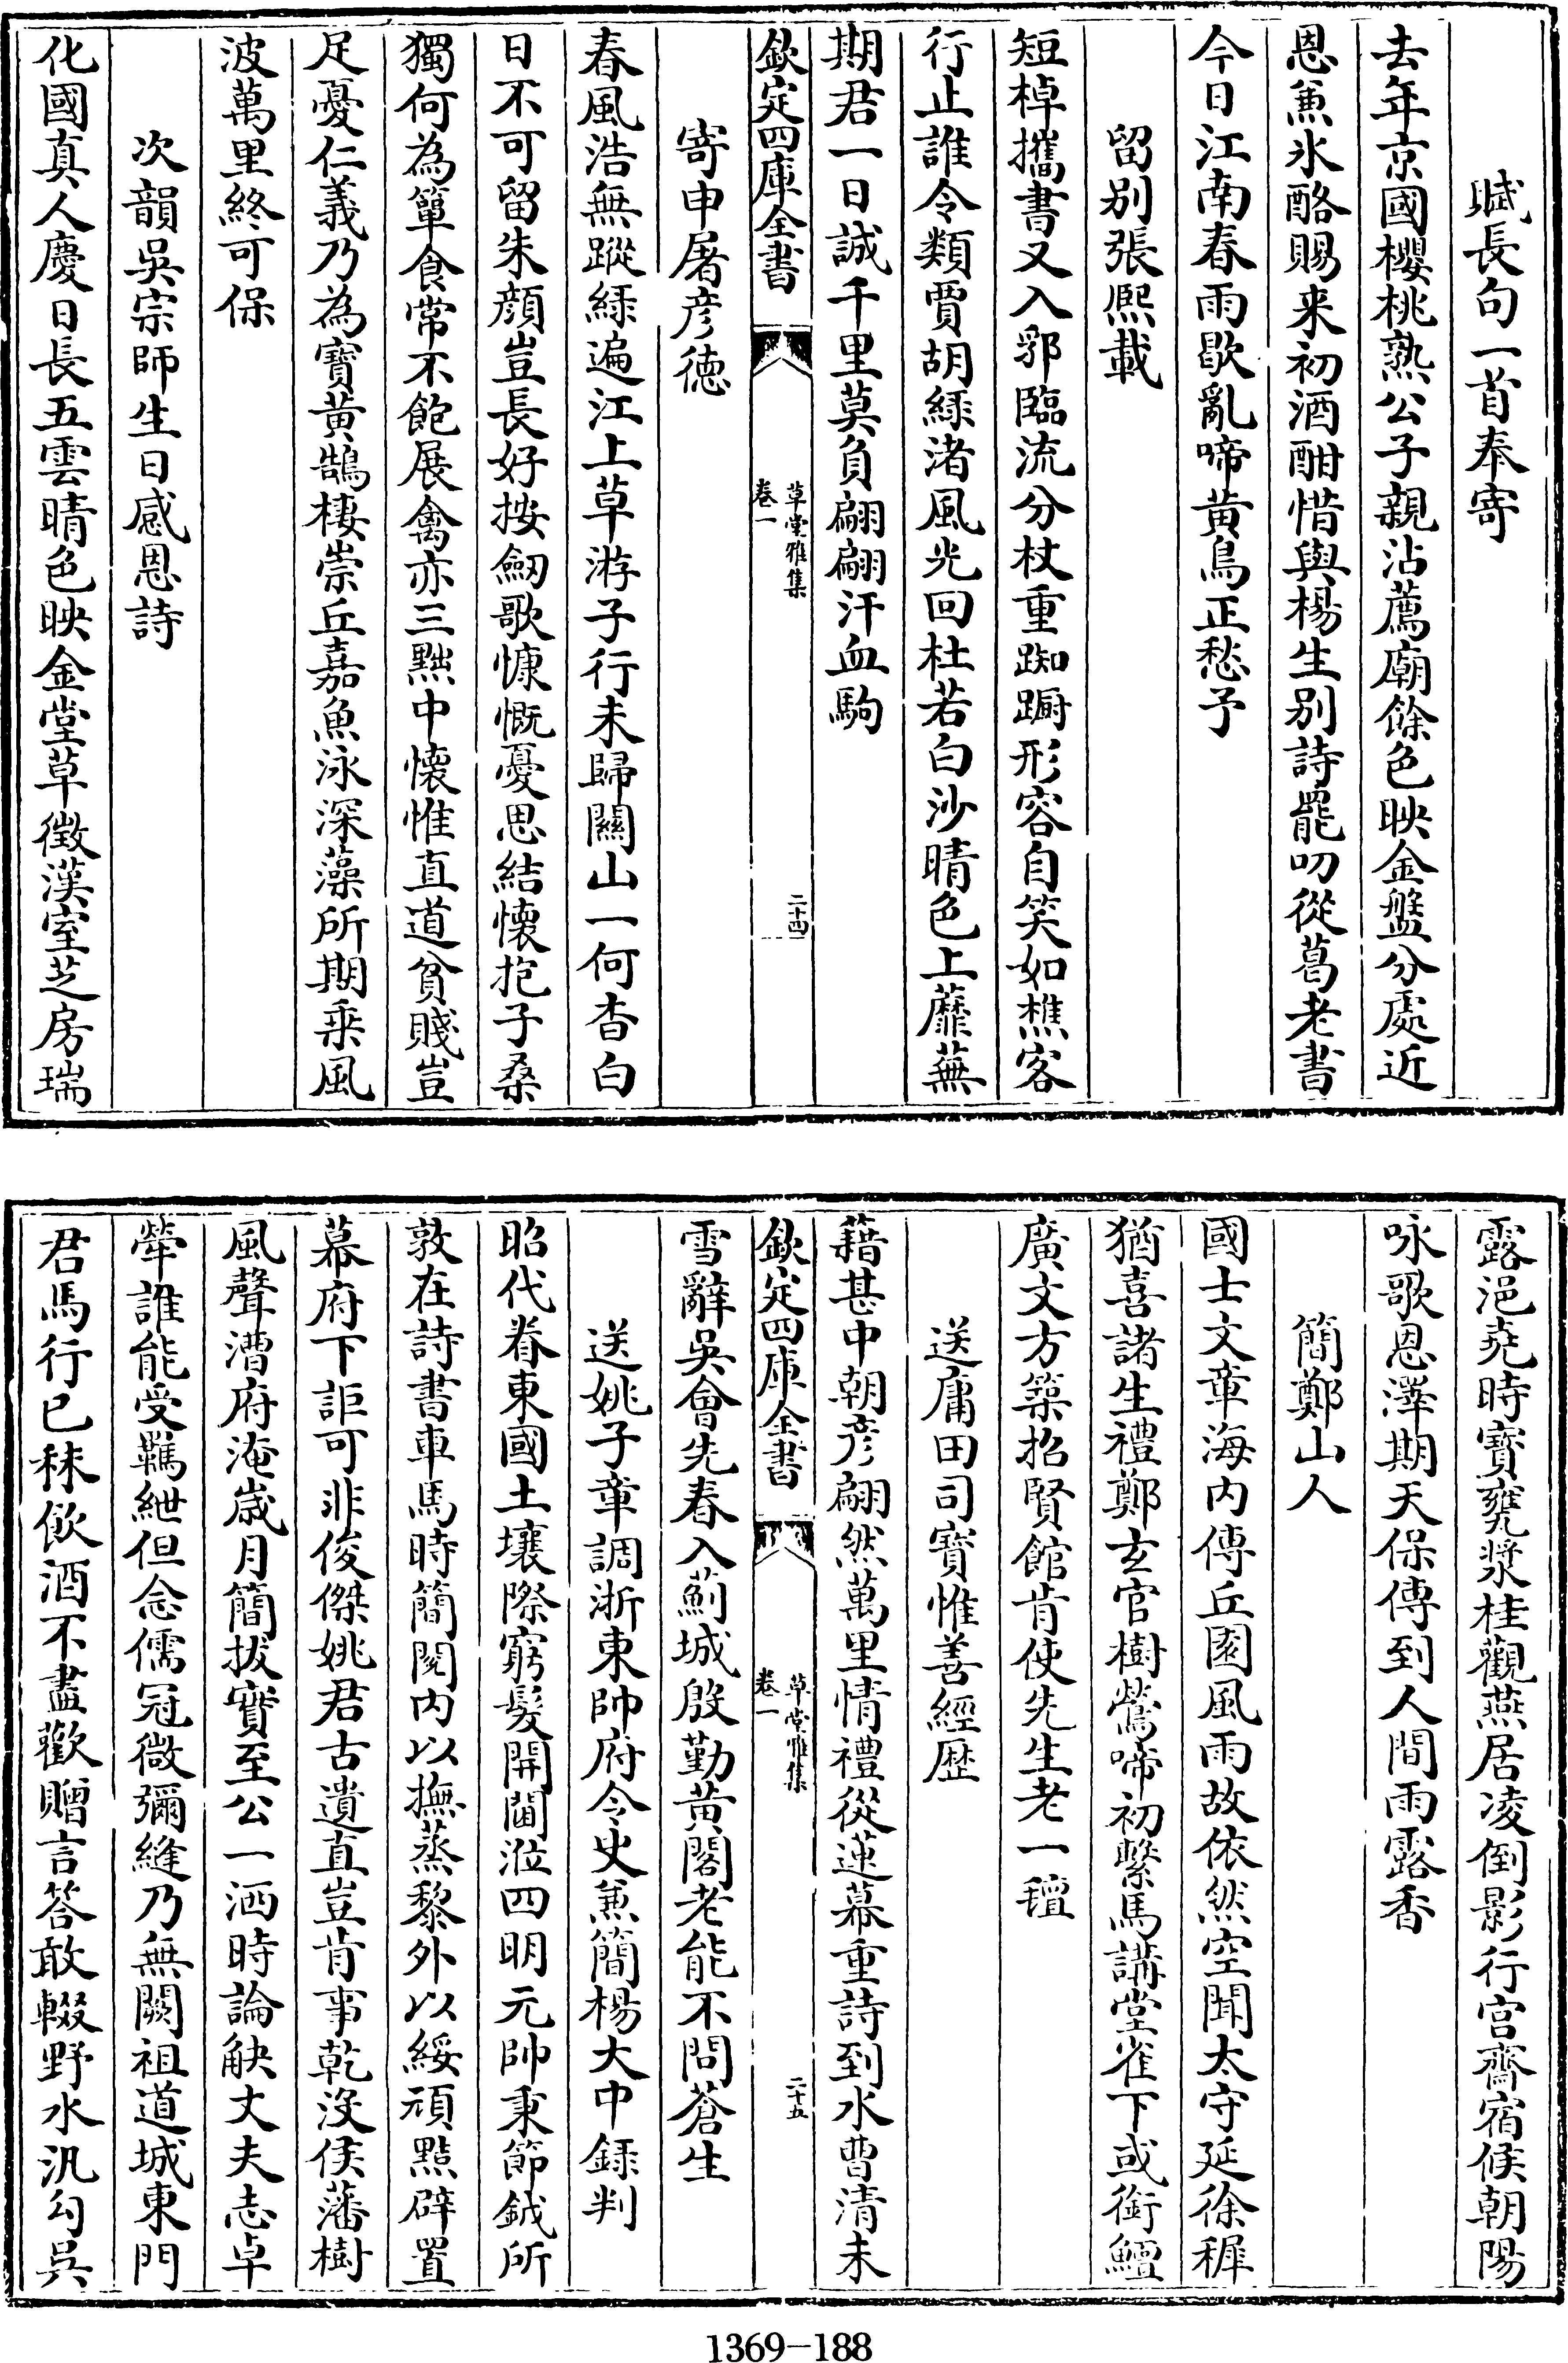 賦長句一首奉寄
去年京國櫻桃熟公子親沾薦廟餘色映金盤分處近
恩兼氷酪賜来初酒酣惜與楊生别詩罷叨從葛老書
今日江南春雨歇亂啼黄鳥正愁予
留别張熙載
短棹攜書又入郛臨流分杖重踟蹰形容自笑如樵客
行止誰令類賈胡緑渚風光回杜若白沙晴色上蘼蕪
期君一日誠千里莫負翩翩汗血駒
欽定四庫全書
草堂雅集
卷一
二十四
寄申屠彦徳
春風浩無蹤緑遍江上草游子行未歸關山一何杳白
日不可留朱顔豈長好按劒歌慷慨憂思結懐抱子桑
獨何為簞食常不飽展禽亦三黜中懐惟直道貧賤豈
足憂仁義乃為寶黄鵠棲崇丘嘉魚泳深藻所期乗風
波萬里終可保
次韻吳宗師生日感恩詩
化國真人慶日長五雲晴色映金堂草徵漢室芝房瑞
露浥堯時寶甕漿桂觀燕居凌倒影行宫齋宿候朝陽
咏歌恩澤期天保傳到人間雨露香
簡鄭山人
國士文章海内傳丘園風雨故依然空聞太守延徐穉
猶喜諸生禮鄭玄官樹鶯啼初繫馬講堂雀下或銜鱣
廣文方築招賢館肯使先生老一氊
送庸田司寶惟善經歴
藉甚中朝彦翩然萬里情禮從蓮幕重詩到水曹清未
欽定四庫全書
草堂雅集
卷一
二十五
雪辭吳會先春入薊城殷勤黄閣老能不問蒼生
送姚子章調浙東帥府令史兼簡楊大中録判
昭代眷東國土壤際窮髮開閫涖四明元帥秉節鉞所
敦在詩書車馬時簡閲内以撫蒸黎外以綏頑黠辟置
幕府下詎可非俊傑姚君古遺直豈肯事乾没侯藩樹
風聲漕府淹嵗月簡拔實至公一洒時論觖丈夫志卓
犖誰能受羈紲但念儒冠微彌縫乃無闕祖道城東門
君馬行已秣飲酒不盡歡贈言答敢輟野水汎勾吳
1369-188